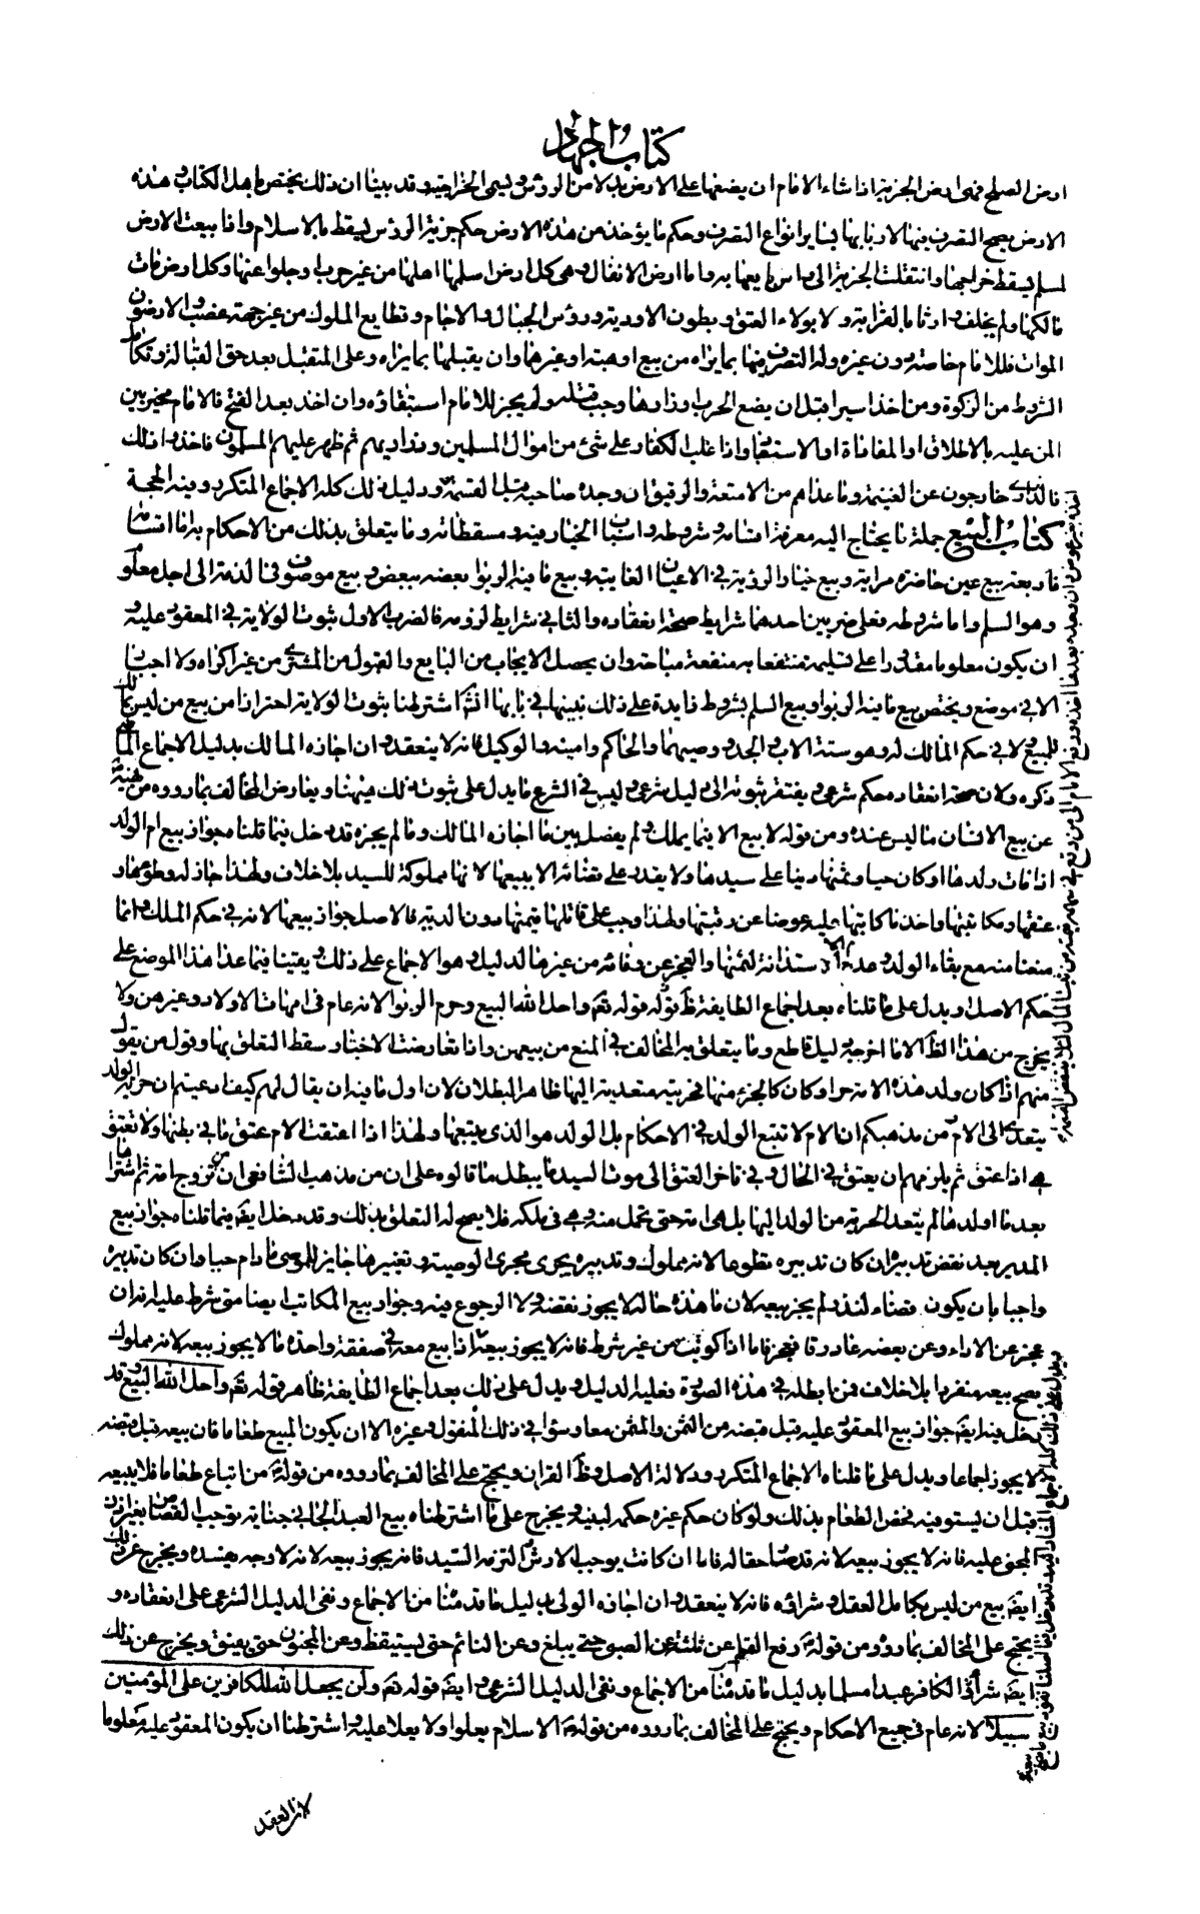 كتاب الجهاد
ارض الصلح فهى ارض الجزية اذا شاء الامام ان يضعها على الارض بدلا من الرؤس ويسمى الخراجية وقد بينا ان ذلك يختص باهل الكتاب وهذه
الارض يصح التصرف فيها لاربابها بساير انواع التصرف وحكم ما يؤخذ من هذه الارض حكم جزية الرؤس يسقط بالاسلام واذا بيعت الارض
لمسلم يسقط خراجها وانتقلت الجزية الى راس بايعها به واما ارض الانفال وهى كل ارض اسلمها اهلها من غير حرب او جلوا عنها وكل ارض مات
مالكها ولم يخلف وارثا بالقرابة ولا بولاء العتق وبطون الاودية ورؤس الجبال والاجام وقطايع الملوك من غير جهة غصب والارضون
الموات فللامام خاصة دون غيره وله التصرف فيها بما يراه من بيع او هبة او غيرهما وان يقبلها بما يراه وعلى المتقبل بعد حق القبالة وتكامل
الشروط من الزكوة ومن اخذ اسيرا قبل ان يضع الحرب اوزارها وجب قتله ولم يجز للامام استبقاؤه وان اخذ بعد الفتح فالامام مخير بين
المن عليه بالاطلاق او المفاداة او الاستعباد واذا غلب الكفار على شئ من اموال المسلمين وذراريهم ثم ظهر عليهم المسلمون فاخذوا ذلك
فالذراري خارجون عن الغنيمة وما عداهم من الامتعة والرقيق ان وجده صاحبه قبل القسمة ودليل ذلك كله الاجماع المتكرر وفيه الحجة
كتاب البيع جملة ما يحتاج اليه معرفة اقسامه وشروطه واسباب الخيار فيه ومسقطاته وما يتعلق بذلك من الاحكام به اما اقسامه
فاربعة بيع عين حاضرة مراية وبيع خيار الرؤية في الاعيان الغايبة وبيع ما فيه الربوا بعضه ببعض وبيع موصوف في الذمة الى اجل معلوم
وهو السلم واما شروطه فعلى ضربين احدهما شرايط صحة انعقاده والثاني شرايط لزومه فالضرب الاول ثبوت الولاية في المعقود عليه و
ان يكون معلوما مقدورا على تسليمه منتفعا به منفعة مباحة وان يحصل الايجاب من البايع والقبول من المشتري من غير اكراه ولا اجبار
الا في موضع ويختص بيع ما فيه الربوا وبيع السلم بشروط زايدة على ذلك نبينها في بابها انشا اشترطنا ثبوت الولاية احترازا من بيع من ليس بمالك
للمبيع ولا في حكم المالك له وهو ستة الاب والجد ووصيهما والحاكم وامينه والوكيل فانه لا ينعقد وان اجازه المالك بدليل الاجماع الماضى
ذكره ولان صحة انعقاده حكم شرعي يفتقر ثبوته الى دليل شرعي وليس في الشرع ما يدل على ثبوت ذلك هيهنا ويعارض المخالف بما رووه من نهيه
عن بيع الانسان ما ليس عنده ومن قوله لا بيع الا فيما يملك ولم يفصل بين ما اجازه المالك وما لم يجزه قد دخل فيما قلناه جواز بيع ام الولد
اذا مات ولدها او كان حيا وثمنها دينا على سيدها ولا يقدر على قضائه الا ببيعها لانها مملوكة للسيد بلا خلاف ولهذا جاز له وطؤها و
عتقها ومكاتبتها واخذ ما كاتبها عليه عوضا عن رقبتها ولهذا وجب على قاتلها قيمتها دون الدية فالاصل جواز بيعها لانه في حكم الملك وانما
منعنا منه مع بقاء الولد وعدم الاستدانة لثمنها والعجز عن وفائه من غيرها لدليل وهو الاجماع على ذلك وبقينا فيما عدا هذا الموضع على
حكم الاصل ويدل على ما قلناه بعد اجماع الطايفة ظ قوله تع واحل الله البيع وحرم الربوا لانه عام في امهات الاولاد وغيرهن ولا
يخرج من هذا الظ الا ما اخرجه دليل قاطع وما يتعلق به المخالف في المنع من بيعهن واذا تعارضت الاخبار سقط التعلق بها وقول من يقول
منهم اذا كان ولد هذه الامة حرا وكان كالجزء منها فحريته متعدية اليها ظاهر البطلان لان اول ما فيه ان يقال لهم كيف ادعيتم ان حرية الولد
يتعدى الى الام ومن مذهبكم ان الام لا تتبع الولد في الاحكام بل الولد هو الذى يتبعها ولهذا اذا اعتقت الام عتق ما في بطنها ولا تعتق
هى اذا عتق ثم يلزمهم ان يعتق في الحال وفي تاخر العتق الى موت السيد ما يبطل ما قالوه على ان من مذهب الشافعى ان من تزوج امة ثم اشتراها
بعد ما اولدها لم يتعد الحرية من الولد اليها بل هى امة حتى تحمل منه وهى في ملكه فلا يصح له التعلق بذلك وقد دخل ايضا فيما قلناه جواز بيع
المدبر بعد نقض تدبيره ان كان تدبيره تطوعا لانه مملوك وتدبيره يجرى مجرى الوصية وتغييرها جايز للموصى ما دام حيا وان كان تدبيره
واجبا بان يكون قضاء لنذر لم يجز بيعه لان ما هذه حاله لا يجوز نقضه ولا الرجوع فيه وجواز بيع المكاتب ايضا متى شرط عليه انه ان
عجز عن الاداء وعن بعضه عاد رقا فعجز فاما اذا كوتب من غير شرط فانه لا يجوز بيعه اذا بيع معه في صفقة واحدة ما لا يجوز بيعه لانه مملوك
يصح بيعه منفردا بلا خلاف فمن ابطله في هذه الصورة فعليه الدليل ويدل على ذلك بعد اجماع الطايفة ظاهر قوله تع واحل الله البيع وقد
دخل فيه ايضا جواز بيع المعقود عليه قبل قبضه من الثمن والمثمن معا وسواء في ذلك المنقول وغيره الا ان يكون المبيع طعاما فان بيعه قبل قبضه
لا يجوز اجماعا ويدل على ما قلناه الاجماع المتكرر ودلالة الاصل وظ القرآن ويحتج على المخالف بما رووه من قوله من ابتاع طعاما فلا يبيعه
قبل ان يستوفيه فخص الطعام بذلك ولو كان حكم غيره حكمه لبينه ويخرج على ما اشترطناه بيع العبد الجاني جناية توجب القصاص بغير اذن
المجنى عليه فانه لا يجوز بيعه لانه قد صار حقا له فاما ان كانت يوجب الارش التزمه السيد فانه يجوز بيعه لانه لا وجه يفسده ويخرج عن ذلك
ايضا بيع من ليس بكامل العقل وشرائه فانه لا ينعقد وان اجازه الولى بدليل ما قدمنا من الاجماع ونفى الدليل الشرعى على انعقاده و
يحتج على المخالف بما رووه من قوله رفع القلم عن ثلثة عن الصبى حتى يبلغ وعن النائم حتى يستيقظ وعن المجنون حتى يفيق ويخرج عن ذلك
ايضا شراء الكافر عبدا مسلما بدليل ما قدمنا من الاجماع ونفى الدليل الشرعى وايضا قوله تع ولن يجعل الله للكافرين على المؤمنين
سبيلا لانه عام في جميع الاحكام ويحتج على المخالف بما رووه من قوله الاسلام يعلوا ولا يعلا عليه واشترطنا ان يكون المعقود عليه معلوما
لان العقد